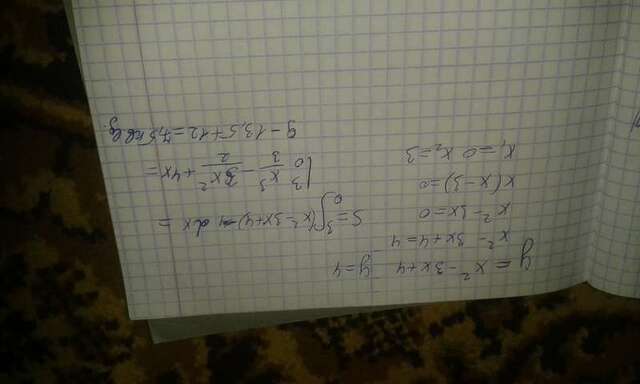 y = x² - 3x + 4 y = 4
x² - 3x + 4 = 4
x² - 3x = 0
x(x - 3) = 0
x₁ = 0 x₂ = 3
S = ∫₀³ (x² - 3x + 4) dx =
|₀³ x³/3 - 3x²/2 + 4x =
9 - 13,5 + 12 = 7,5